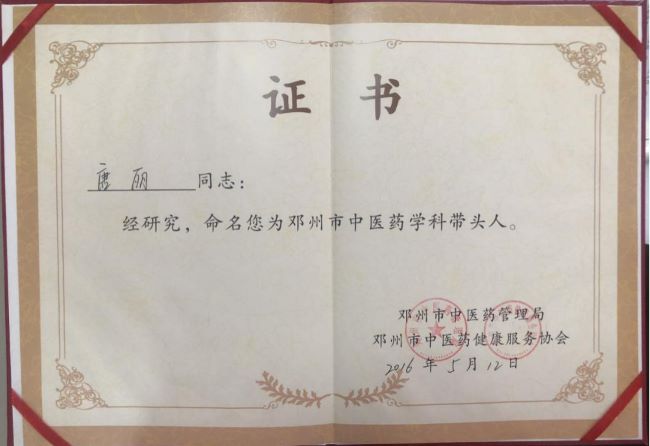 证书
唐丽 同志：
经研究，命名您为邓州市中医药学科带头人。
邓州市中医药管理局
邓州市中医药健康服务协会
2016年5月12日